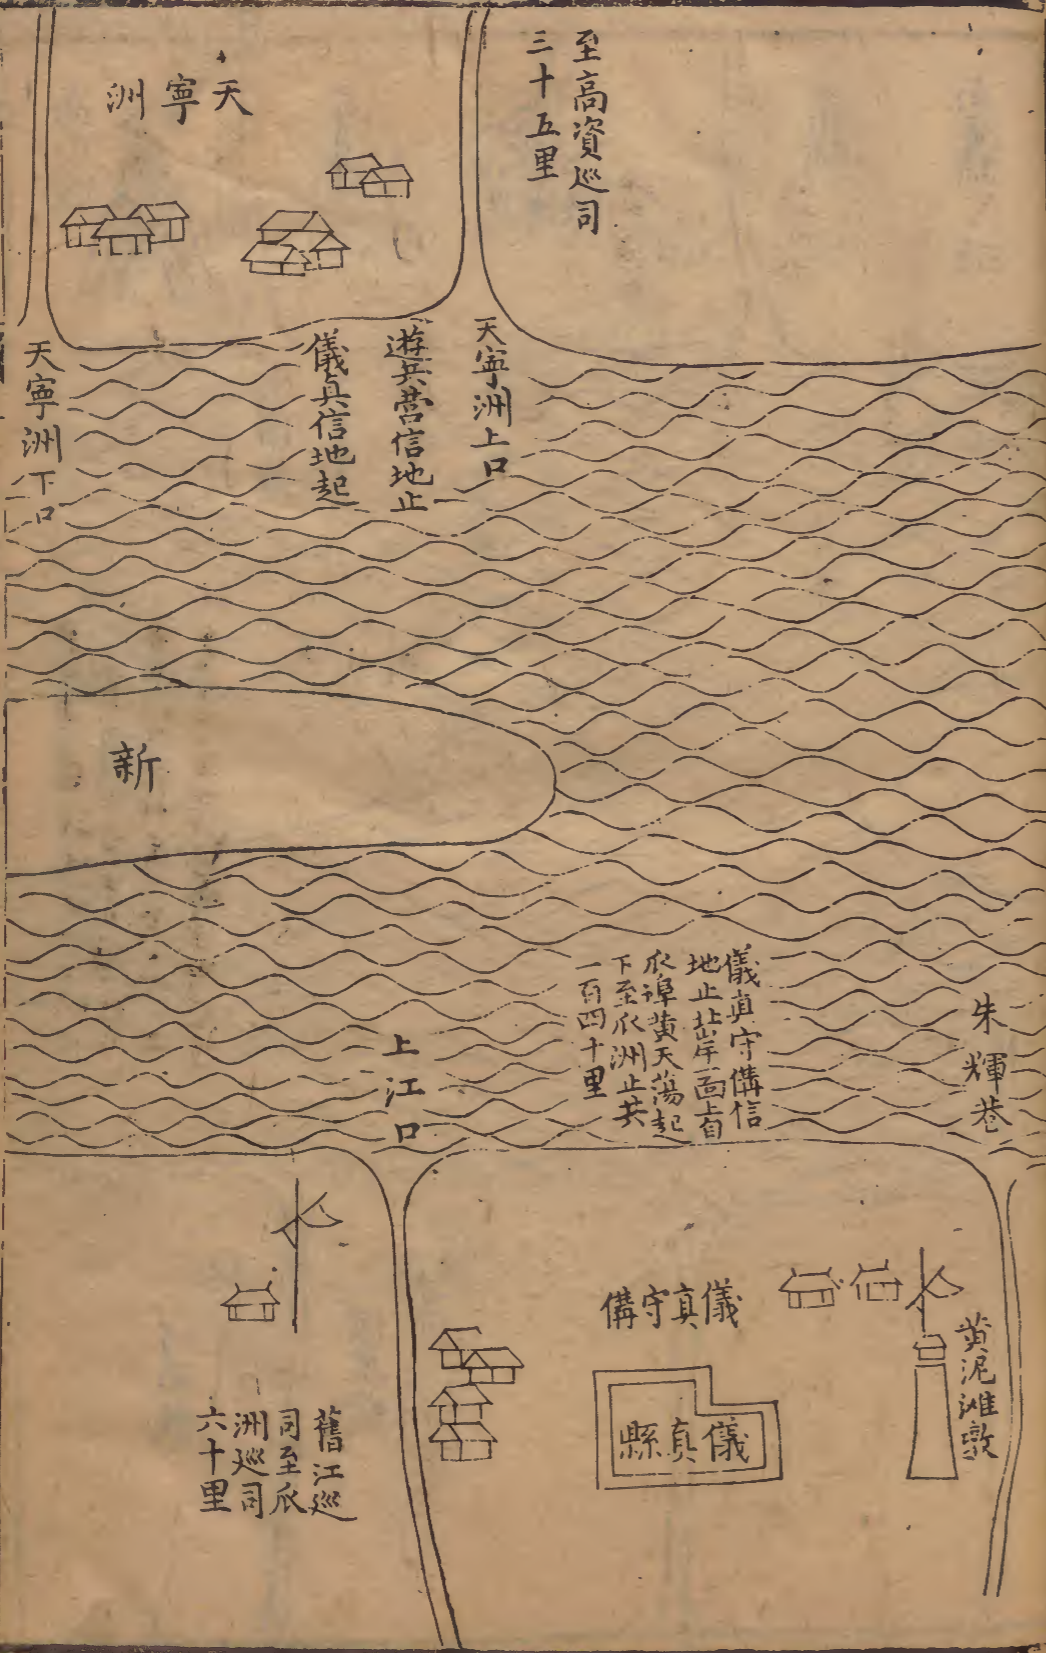 至高資巡司
三十五里
天寧洲
天寧洲上口
遊兵營信地止
儀真信地起
天寧洲下口
新
朱輝巷
儀真守備信
地止北岸一面上自
瓜埠黃天蕩起
下至瓜洲止共
一百四十里
上江口
黃泥滩墩
儀真守備
儀真縣
舊江巡
司至瓜
洲巡司
六十里